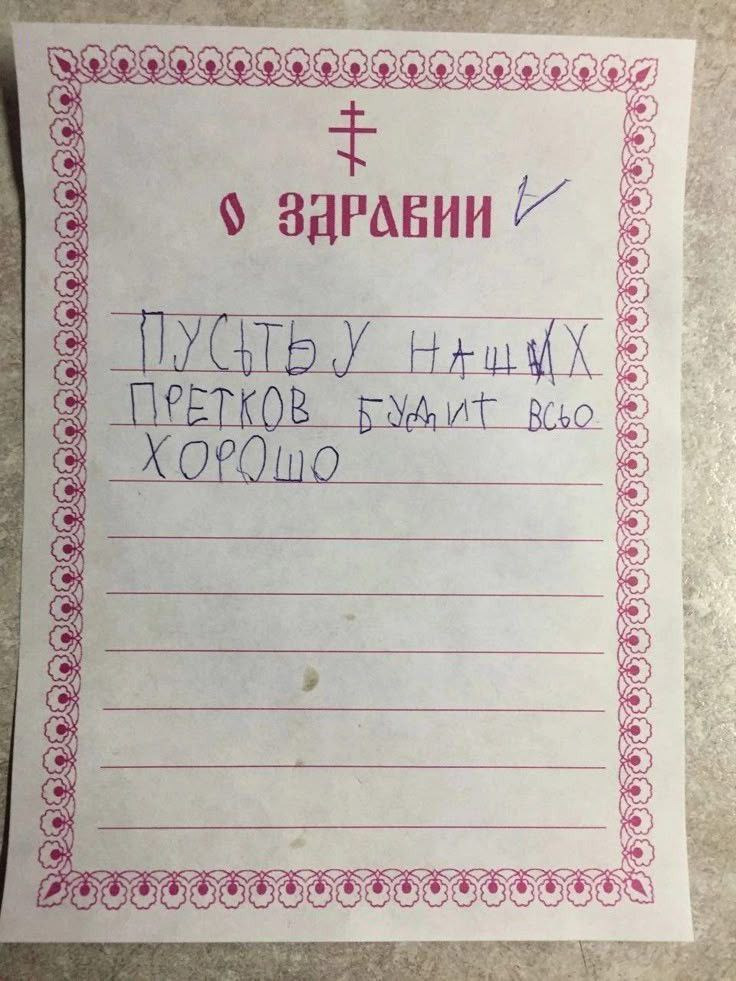 О ЗДРАВИИ
ПУСЬТЬ У НАШИХ
ПРЕТКОВ БУДИТ ВСЬО
ХОРОШО